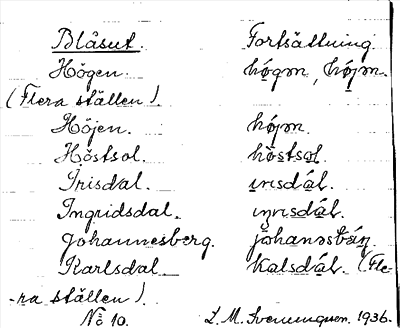 Blåsut. Fortsättning.
Högen. họ́gən, họ́jən.
(Flera ställen).
Höjen. họ́jən.
Höstsol. hö̀stsol.
Irisdal. ırısdál.
Ingridsdal. ıŋrısdál.
Johannesberg. johanəsbárj.
Karlsdal. kalsdál. (Fle-
-ra ställen).
No 10. L. M. Svenungsson. 1936.